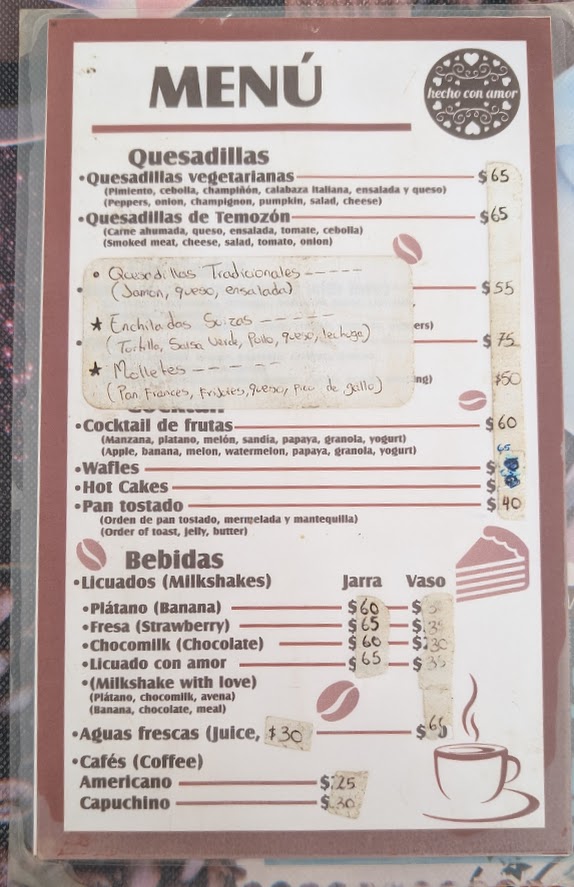 MENÚ
hecho con amor
Quesadillas
•Quesadillas vegetarianas $65
(Pimiento, cebolla, champiñón, calabaza italiana, ensalada y queso)
(Peppers, onion, champignon, pumpkin, salad, cheese)
•Quesadillas de Temozón $65
(Carne ahumada, queso, ensalada, tomate, cebolla)
(Smoked meat, cheese, salad, tomato, onion)
• Quesadillas Tradicionales ----- $55
(Jamon, queso, ensalada)
★ Enchiladas Suizas ----- $75
(Tortilla, Salsa Verde, Pollo, queso, lechuga)
★ Molletes ----- $50
(Pan Frances, Frijoles, queso, pico de gallo)
•Cocktail de frutas $60
(Manzana, platano, melón, sandía, papaya, granola, yogurt)
(Apple, banana, melon, watermelon, papaya, granola, yogurt)
65
•Wafles $
•Hot Cakes $
•Pan tostado $40
(Orden de pan tostado, mermelada y mantequilla)
(Order of toast, jelly, butter)
Bebidas
•Licuados (Milkshakes) Jarra Vaso
•Plátano (Banana) $60 $
•Fresa (Strawberry) $65 $35
•Chocomilk (Chocolate) $60 $30
•Licuado con amor $65 $35
•(Milkshake with love)
(Plátano, chocomilk, avena)
(Banana, chocolate, meal)
•Aguas frescas (Juice, $30 $
•Cafés (Coffee)
Americano $25
Capuchino $30